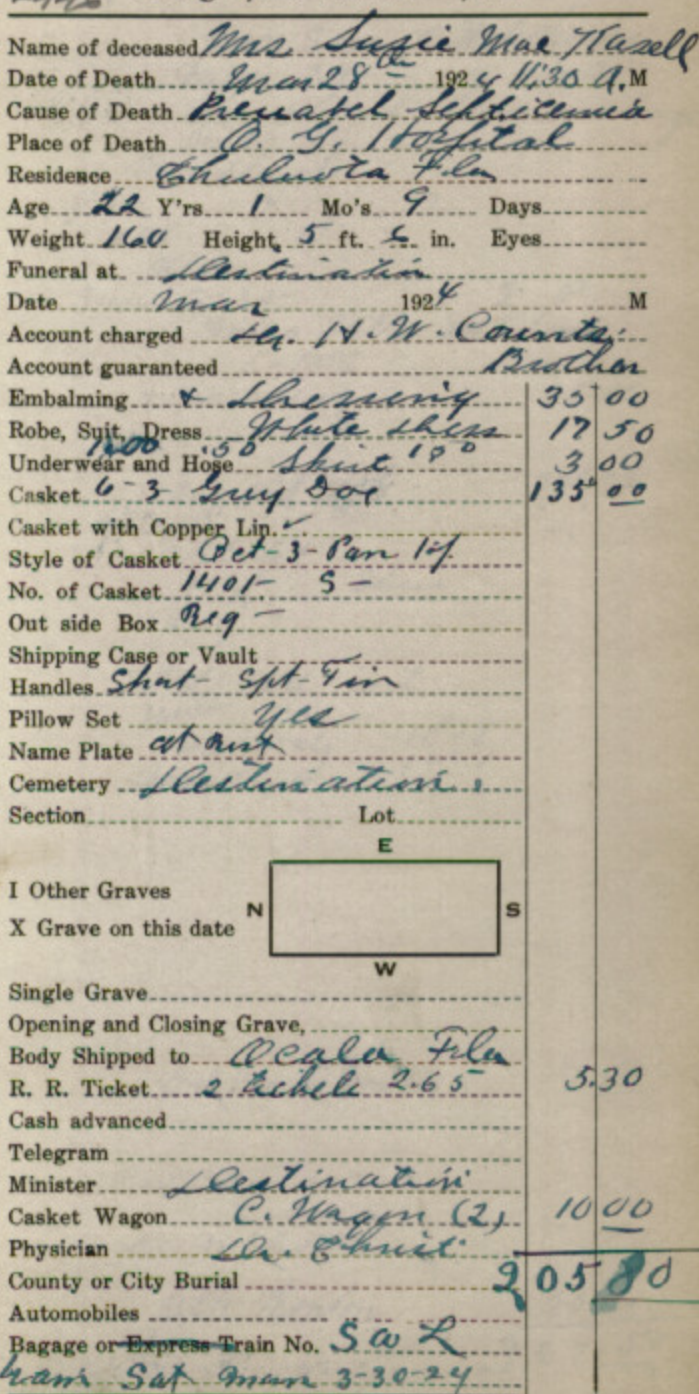 Name of deceased Mrs Susie Mae Hazell
Date of Death Mar 28th 1924 11:30 A.M
Cause of Death Prenatel Septicemia
Place of Death O. G. Hospital
Residence Chuluota Fla
Age 22 Y'rs 1 Mo's 9 Days
Weight 160 Height, 5 ft. 6 in. Eyes
Funeral at Destination
Date Mar 1924 M
Account charged H. W. Counts
Account guaranteed Brother
Embalming + Dressing 35 00
Robe, Suit, Dress White dress 17 50
Underwear and Hose 1.00 .50 Skirt 1 50 3 00
Casket 6-3 Grey Doe 135 00
Casket with Copper Lin.
Style of Casket Oct-3-Pan
No. of Casket 1401- S-
Out side Box Reg-
Shipping Case or Vault
Handles Short Tin
Pillow Set yes
Name Plate At Rest
Cemetery Destination
Section Lot
E
I Other Graves
N S
X Grave on this date
W
Single Grave
Opening and Closing Grave,
Body Shipped to Ocala Fla
R. R. Ticket 2 2.65 5.30
Cash advanced
Telegram
Minister Destination
Casket Wagon C. Wagon (2) 10 00
Physician Dr. Christ
County or City Burial 205 80
Automobiles
Bagage or Express Train No. S a L
Sat 3-30-24